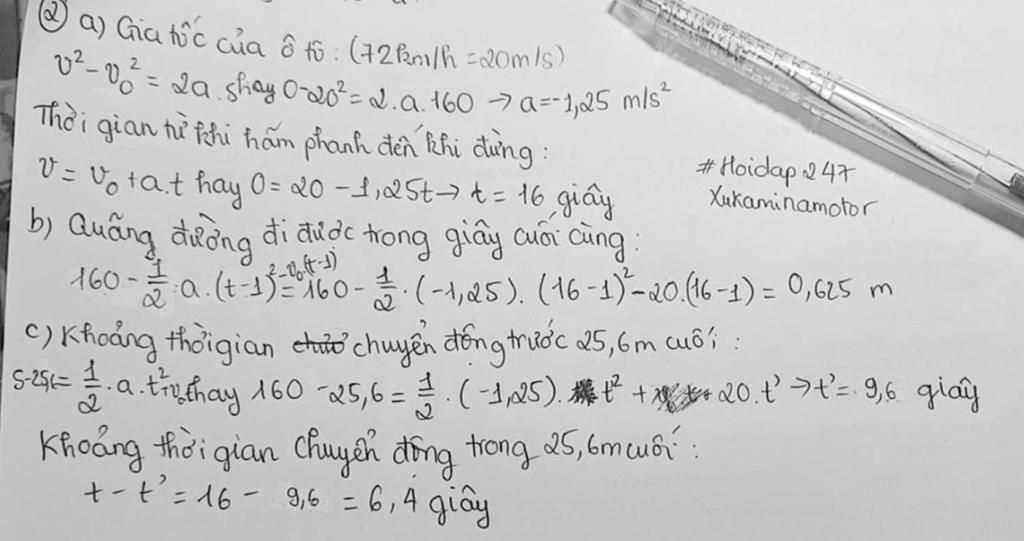 ② a) Gia tốc của ô tô : (72km/h = 20m/s)
v² - v₀² = 2a.s hay 0 - 20² = 2.a.160 → a = -1,25 m/s²
Thời gian từ khi hãm phanh đến khi dừng :
v = v₀ + a.t hay 0 = 20 - 1,25t → t = 16 giây
#Hoidap247
Xukaminamotor
b) Quãng đường đi được trong giây cuối cùng :
160 - 1/2 . a.(t-1)² - v₀(t-1) = 160 - 1/2 . (-1,25) . (16-1)² - 20.(16-1) = 0,625 m
c) Khoảng thời gian chuyển động trước 25,6m cuối :
S-25,6 = 1/2 . a.t² + v₀t hay 160 - 25,6 = 1/2 . (-1,25). t² + 20.t' → t' = 9,6 giây
Khoảng thời gian chuyển động trong 25,6m cuối :
t - t' = 16 - 9,6 = 6,4 giây